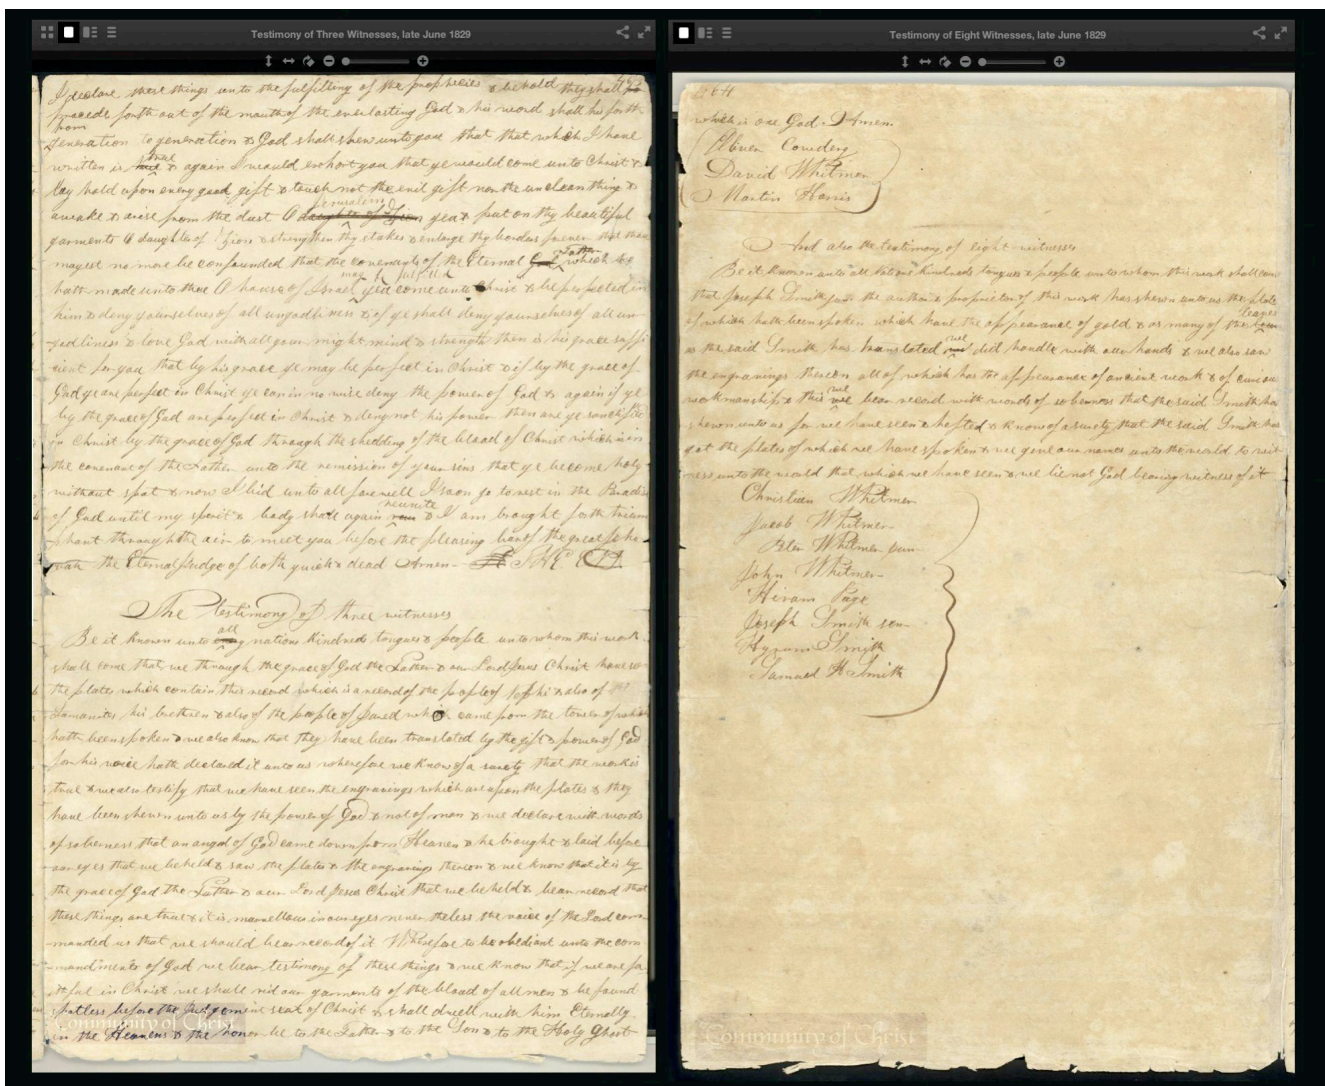 Testimony of Three Witnesses, late June 1829
I declare these things unto the fulfilling of the prophecies & behold they shall
proceed forth out of the mouth of the everlasting God & his word shall hiss forth
from
generation to generation & God shall shew unto you that that which I have
true
written is & again I would exhort you that ye would come unto Christ &
lay hold upon every good gift & touch not the evil gift nor the unclean thing &
Jerusalem
awake & arise from the dust O daughter of Zion yea & put on thy beautiful
garments O daughter of Zion & strengthen thy stakes & enlarge thy borders forever that thou
Father
mayest no more be confounded that the covenants of the Eternal God which he
may be fulfilled
hath made unto thee O house of Israel yea come unto Christ & be perfected in
him & deny yourselves of all ungodliness & if ye shall deny yourselves of all un-
godliness & love God with all your might mind & strength then is his grace suffi
cient for you that by his grace ye may be perfect in Christ & if by the grace of
God ye are perfect in Christ ye can in no wise deny the power of God & again if ye
by the grace of God are perfect in Christ & deny not his power then are ye sanctified
in Christ by the grace of God through the shedding of the blood of Christ which is in
the covenant of the Father unto the remission of your sins that ye become holy
without spot & now I bid unto all farewell I soon go to rest in the Paradise
reunite
of God until my spirit & body shall again & I am brought forth trium
phant through the air to meet you before the pleasing bar of the great Jeho
vah the Eternal Judge of both quick & dead Amen-
The testimony of three witnesses
all
Be it known unto nations kindreds tongues & people unto whom this work
shall come that we through the grace of God the Father & our Lord Jesus Christ have seen
the plates which contain this record which is a record of the people of Nephi & also of the
Lamanites his brethren & also of the people of Jared which came from the tower of which
hath been spoken & we also know that they have been translated by the gift & power of God
for his voice hath declared it unto us wherefore we know of a surety that the work is
true & we also testify that we have seen the engravings which are upon the plates & they
have been shewn unto us by the power of God & not of man & we declare with words
of soberness that an angel of God came down from Heaven & he brought & laid before
our eyes that we beheld & saw the plates & the engravings thereon & we know that it is by
the grace of God the Father & our Lord Jesus Christ that we beheld & bear record that
these things are true & it is marvellous in our eyes nevertheless the voice of the Lord com-
manded us that we should bear record of it Wherefore to be obedient unto the com
mandments of God we bear testimony of these things & we know that if we are fa
ithful in Christ we shall rid our garments of the blood of all men & be found
spotless before the Judgement seat of Christ & shall dwell with him Eternally
in the Heavens & the honor be to the Father & to the Son & to the Holy Ghost
Community of Christ
Testimony of Eight Witnesses, late June 1829
which is one God Amen
Oliver Cowdery
David Whitmer
Martin Harris
And also the testimony of eight witnesses
Be it known unto all nations kindreds tongues & people unto whom this work shall come
that Joseph Smith jun the author & proprietor of this work has shewn unto us the plates
leaves
of which hath been spoken which have the appearance of gold & as many of the
we
as the said Smith has translated did handle with our hands & we also saw
the engravings thereon all of which has the appearance of ancient work & of curious
we
workmanship & this we bear record with words of soberness that the said Smith has
shewn unto us for we have seen & hefted & know of a surety that the said Smith has
got the plates of which we have spoken & we give our names unto the world to wit
ness unto the world that which we have seen & we lie not God bearing witness of it
Christian Whitmer
Jacob Whitmer
Peter Whitmer jun
John Whitmer
Hiram Page
Joseph Smith sen
Hyrum Smith
Samuel H Smith
Community of Christ